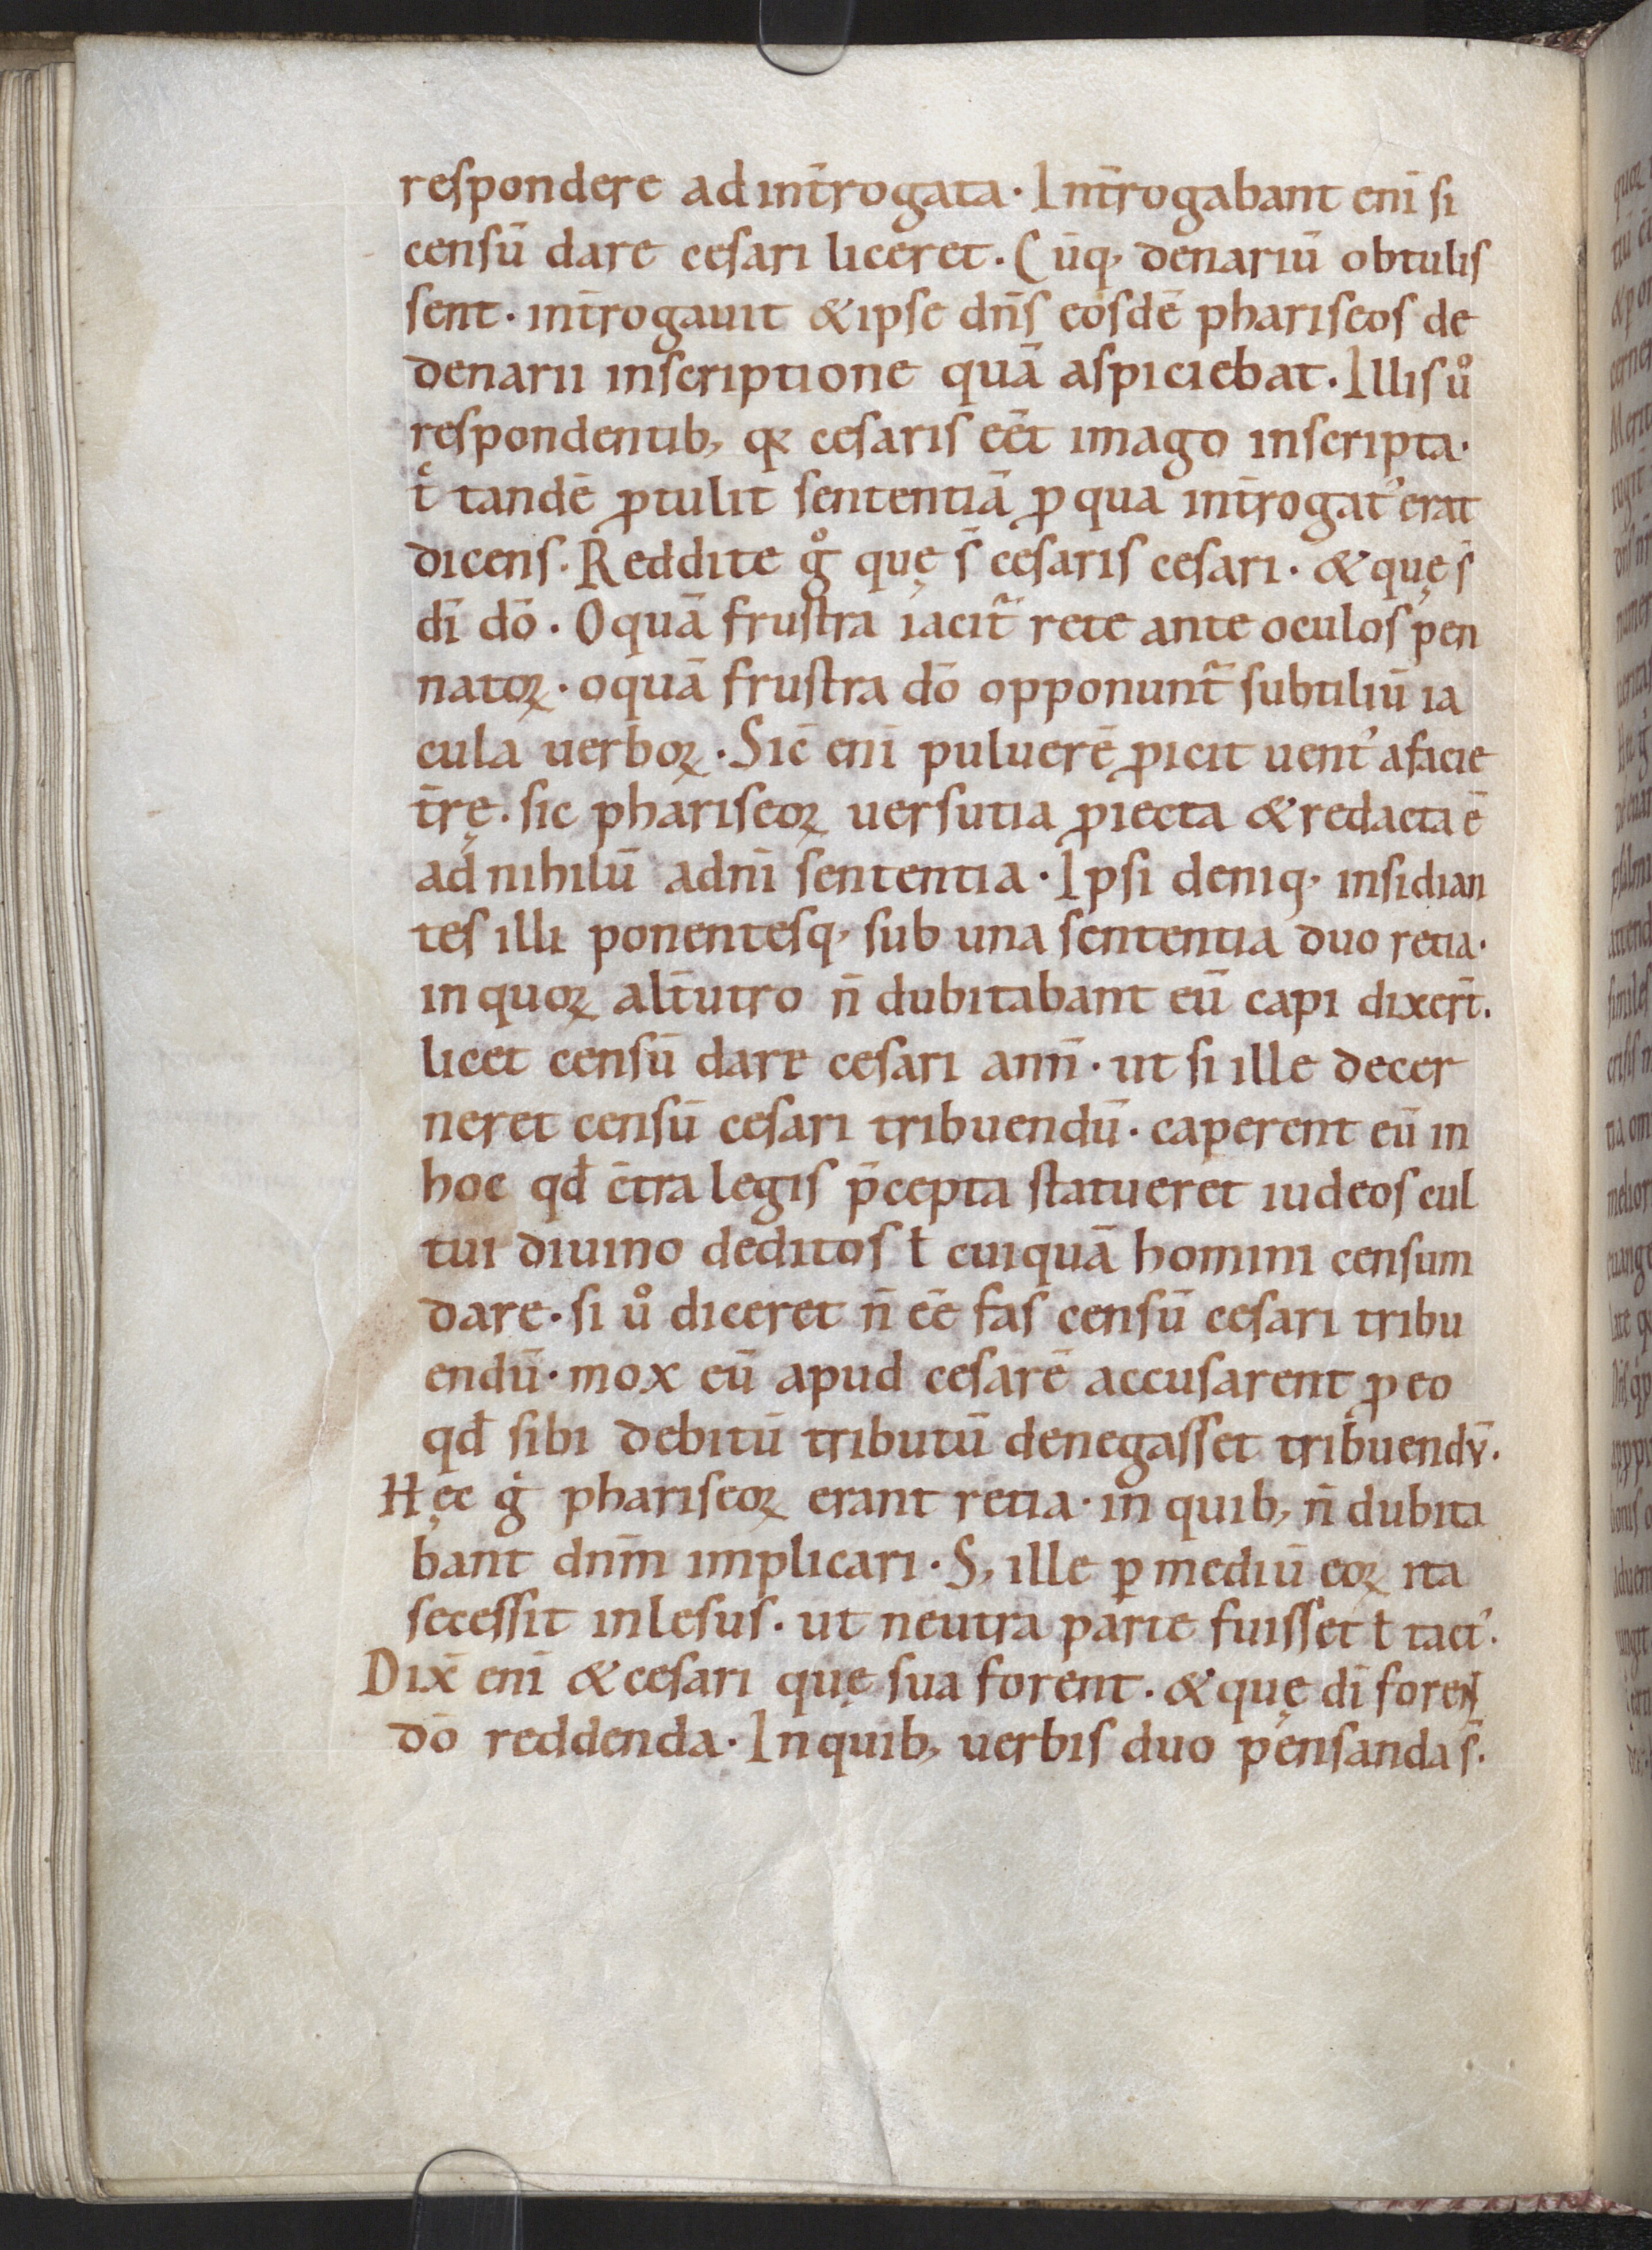 respondere ad int̄rogata· Int̄rogabant enī si
censū dare cesari liceret. Cūq; denariū obtulis
sent· int̄rogauit & ipse dn̄s eosdē phariseos de
denarii inscriptione quā aspiciebat. Illis uͦ
respondentib; qꝫ cesaris eēt imago inscripta·
tͨ tandē ꝓtulit sententiā ꝓ qua int̄rogat᾽ erat
dicens· Reddite gͦ quę s̄ cesaris cesari· & quę s̄
dī dō· O quā frustra iacit᷑ rete ante oculos pen
natoꝝ· o quā frustra dō opponunt᷑ subtiliū ia
cula uerboꝝ· Sic enī puluerē ꝓicit uent᾽ a facie
t̄rę· sic phariseoꝝ uersutia ꝓiecta & redacta ē
ad nihilū a dnī sententia· Ipsi deniq; insidian
tes illi ponentesq; sub una sententia duo retia·
in quoꝝ alt̄utro n̄ dubitabant eū capi dixer̄t.
licet censū dare cesari ann̄· ut si ille decer
neret censū cesari tribuendū· caperent eū in
hoc qđ c̄tra legis p̄cepta statueret iudeos cul
tui diuino deditos ł cuiquā homini censum
dare· si uͦ diceret n̄ eē fas censū cesari tribu
endū· mox eū apud cesarē accusarent ꝓ eo
qđ sibi debitū tributū denegasset tribuendv̄.
Hęc gͥ phariseoꝝ erant retia· in quib; n̄ dubita
bant dn̄m implicari· S; ille ꝑ mediū eoꝝ ita
secessit inlesus· ut neutra parte fuisset ł tact᾽.
Dix̄ enī & cesari quę sua forent· & quę dī forent
dō reddenda· In quib; uerbis duo pensanda s̄·